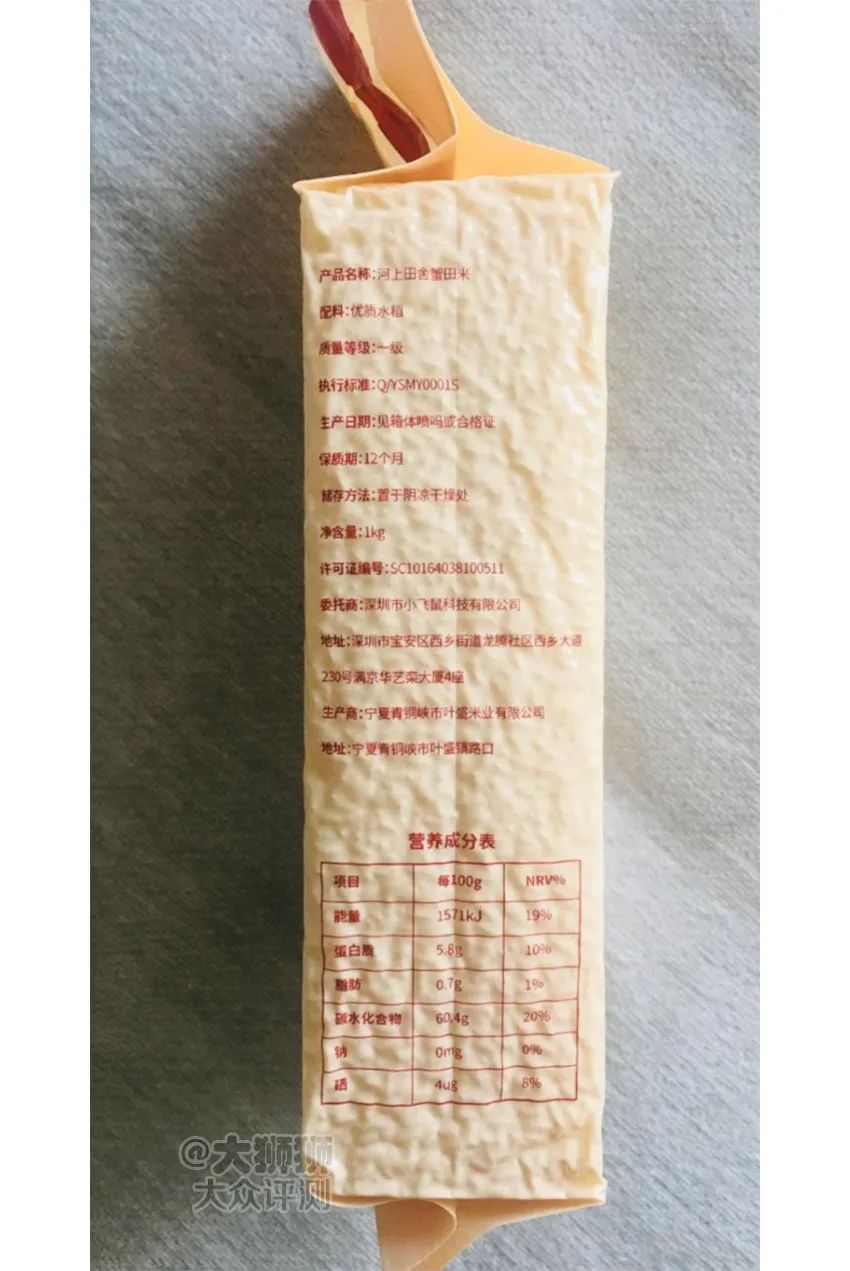 产品名称:河上田舍蟹田米
配料:优质水稻
质量等级:一级
执行标准:Q/YSMY0001S
生产日期:见箱体喷吗或合格证
保质期:12个月
储存方法:置于阴凉干燥处
净含量:1kg
许可证编号:SC10164038100511
委托商:深圳市小飞鼠科技有限公司
地址:深圳市宝安区西乡街道龙腾社区西乡大道
230号满京华艺栾大厦4座
生产商:宁夏青铜峡市叶盛米业有限公司
地址:宁夏青铜峡市叶盛镇路口
营养成分表
项目 每100g NRV%
能量 1571kJ 19%
蛋白质 5.8g 10%
脂肪 0.7g 1%
碳水化合物 60.4g 20%
钠 0mg 0%
硒 4ug 8%
@大狮狮
大众评测